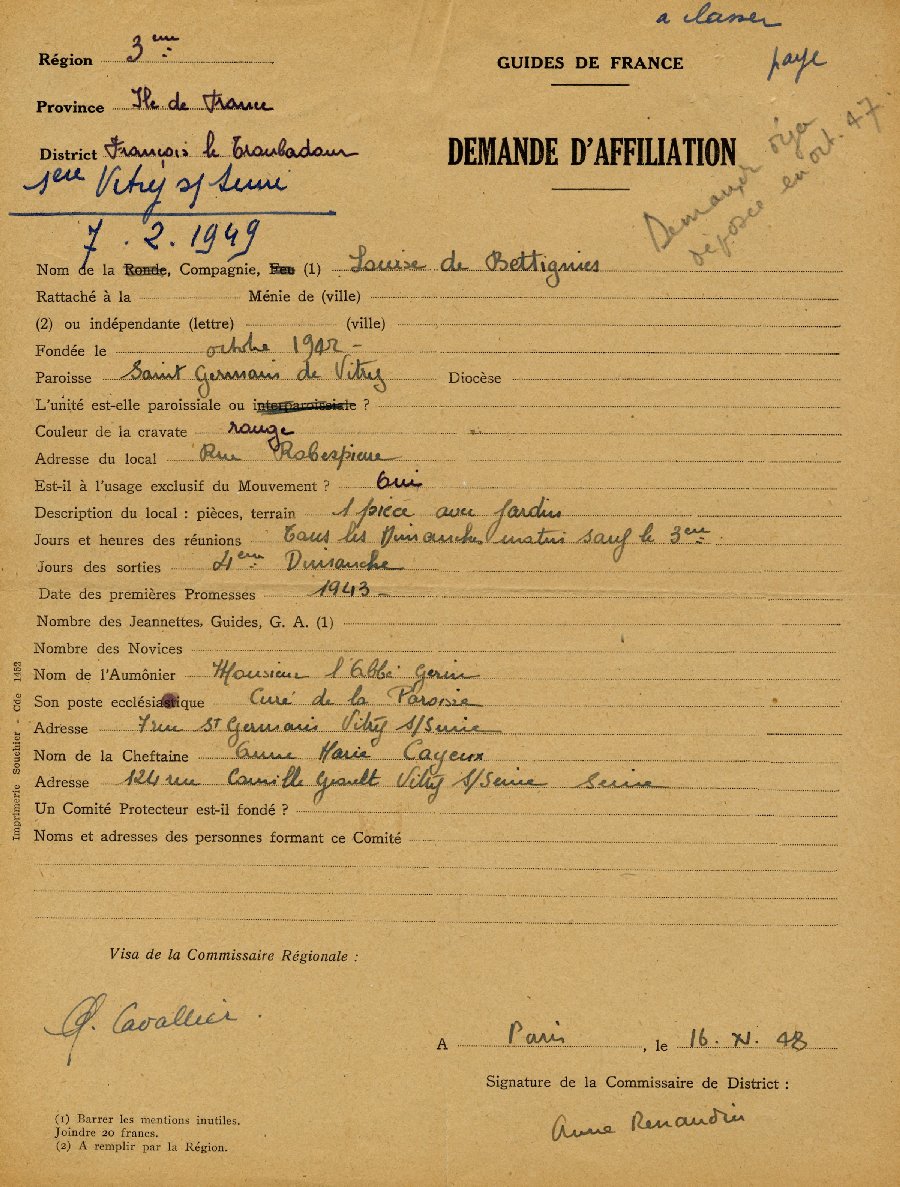 a classer
Région 3eme
GUIDES DE FRANCE
paye
Province Ile de France
District François le Troubadour
DEMANDE D'AFFILIATION
Demande déja
déposée en oct. 47.
1ere Vitry s/ Seine
7.2.1949
Nom de la Ronde, Compagnie, Feu (1) Louise de Bettignies
Rattaché à la Ménie de (ville)
(2) ou indépendante (lettre) (ville)
Fondée le octobre 1942 -
Paroisse Saint Germain de Vitry Diocèse
L'unité est-elle paroissiale ou interparoissiale ?
Couleur de la cravate rouge
Adresse du local Rue Robespierre
Est-il à l'usage exclusif du Mouvement ? Oui
Description du local : pièces, terrain 1 pièce avec jardin
Jours et heures des réunions Tous les Dimanches matin sauf le 3eme
Jours des sorties 4eme Dimanche
Date des premières Promesses 1943 -
Nombre des Jeannettes, Guides, G. A. (1)
Nombre des Novices
Nom de l'Aumônier Monsieur l'Abbé Gerin
Son poste ecclésiastique Curé de la Paroisse
Adresse 7 rue St Germain Vitry S/Seine
Nom de la Cheftaine Anne Marie Cayeux
Adresse 124 rue Camille Groult Vitry S/Seine Seine
Un Comité Protecteur est-il fondé ?
Noms et adresses des personnes formant ce Comité
Imprimerie Souchier - Cde 1453
Visa de la Commissaire Régionale :
Cavallier.
A Paris, le 16. XI. 48
Signature de la Commissaire de District :
Anne Renaudin
(1) Barrer les mentions inutiles.
Joindre 20 francs.
(2) A remplir par la Région.